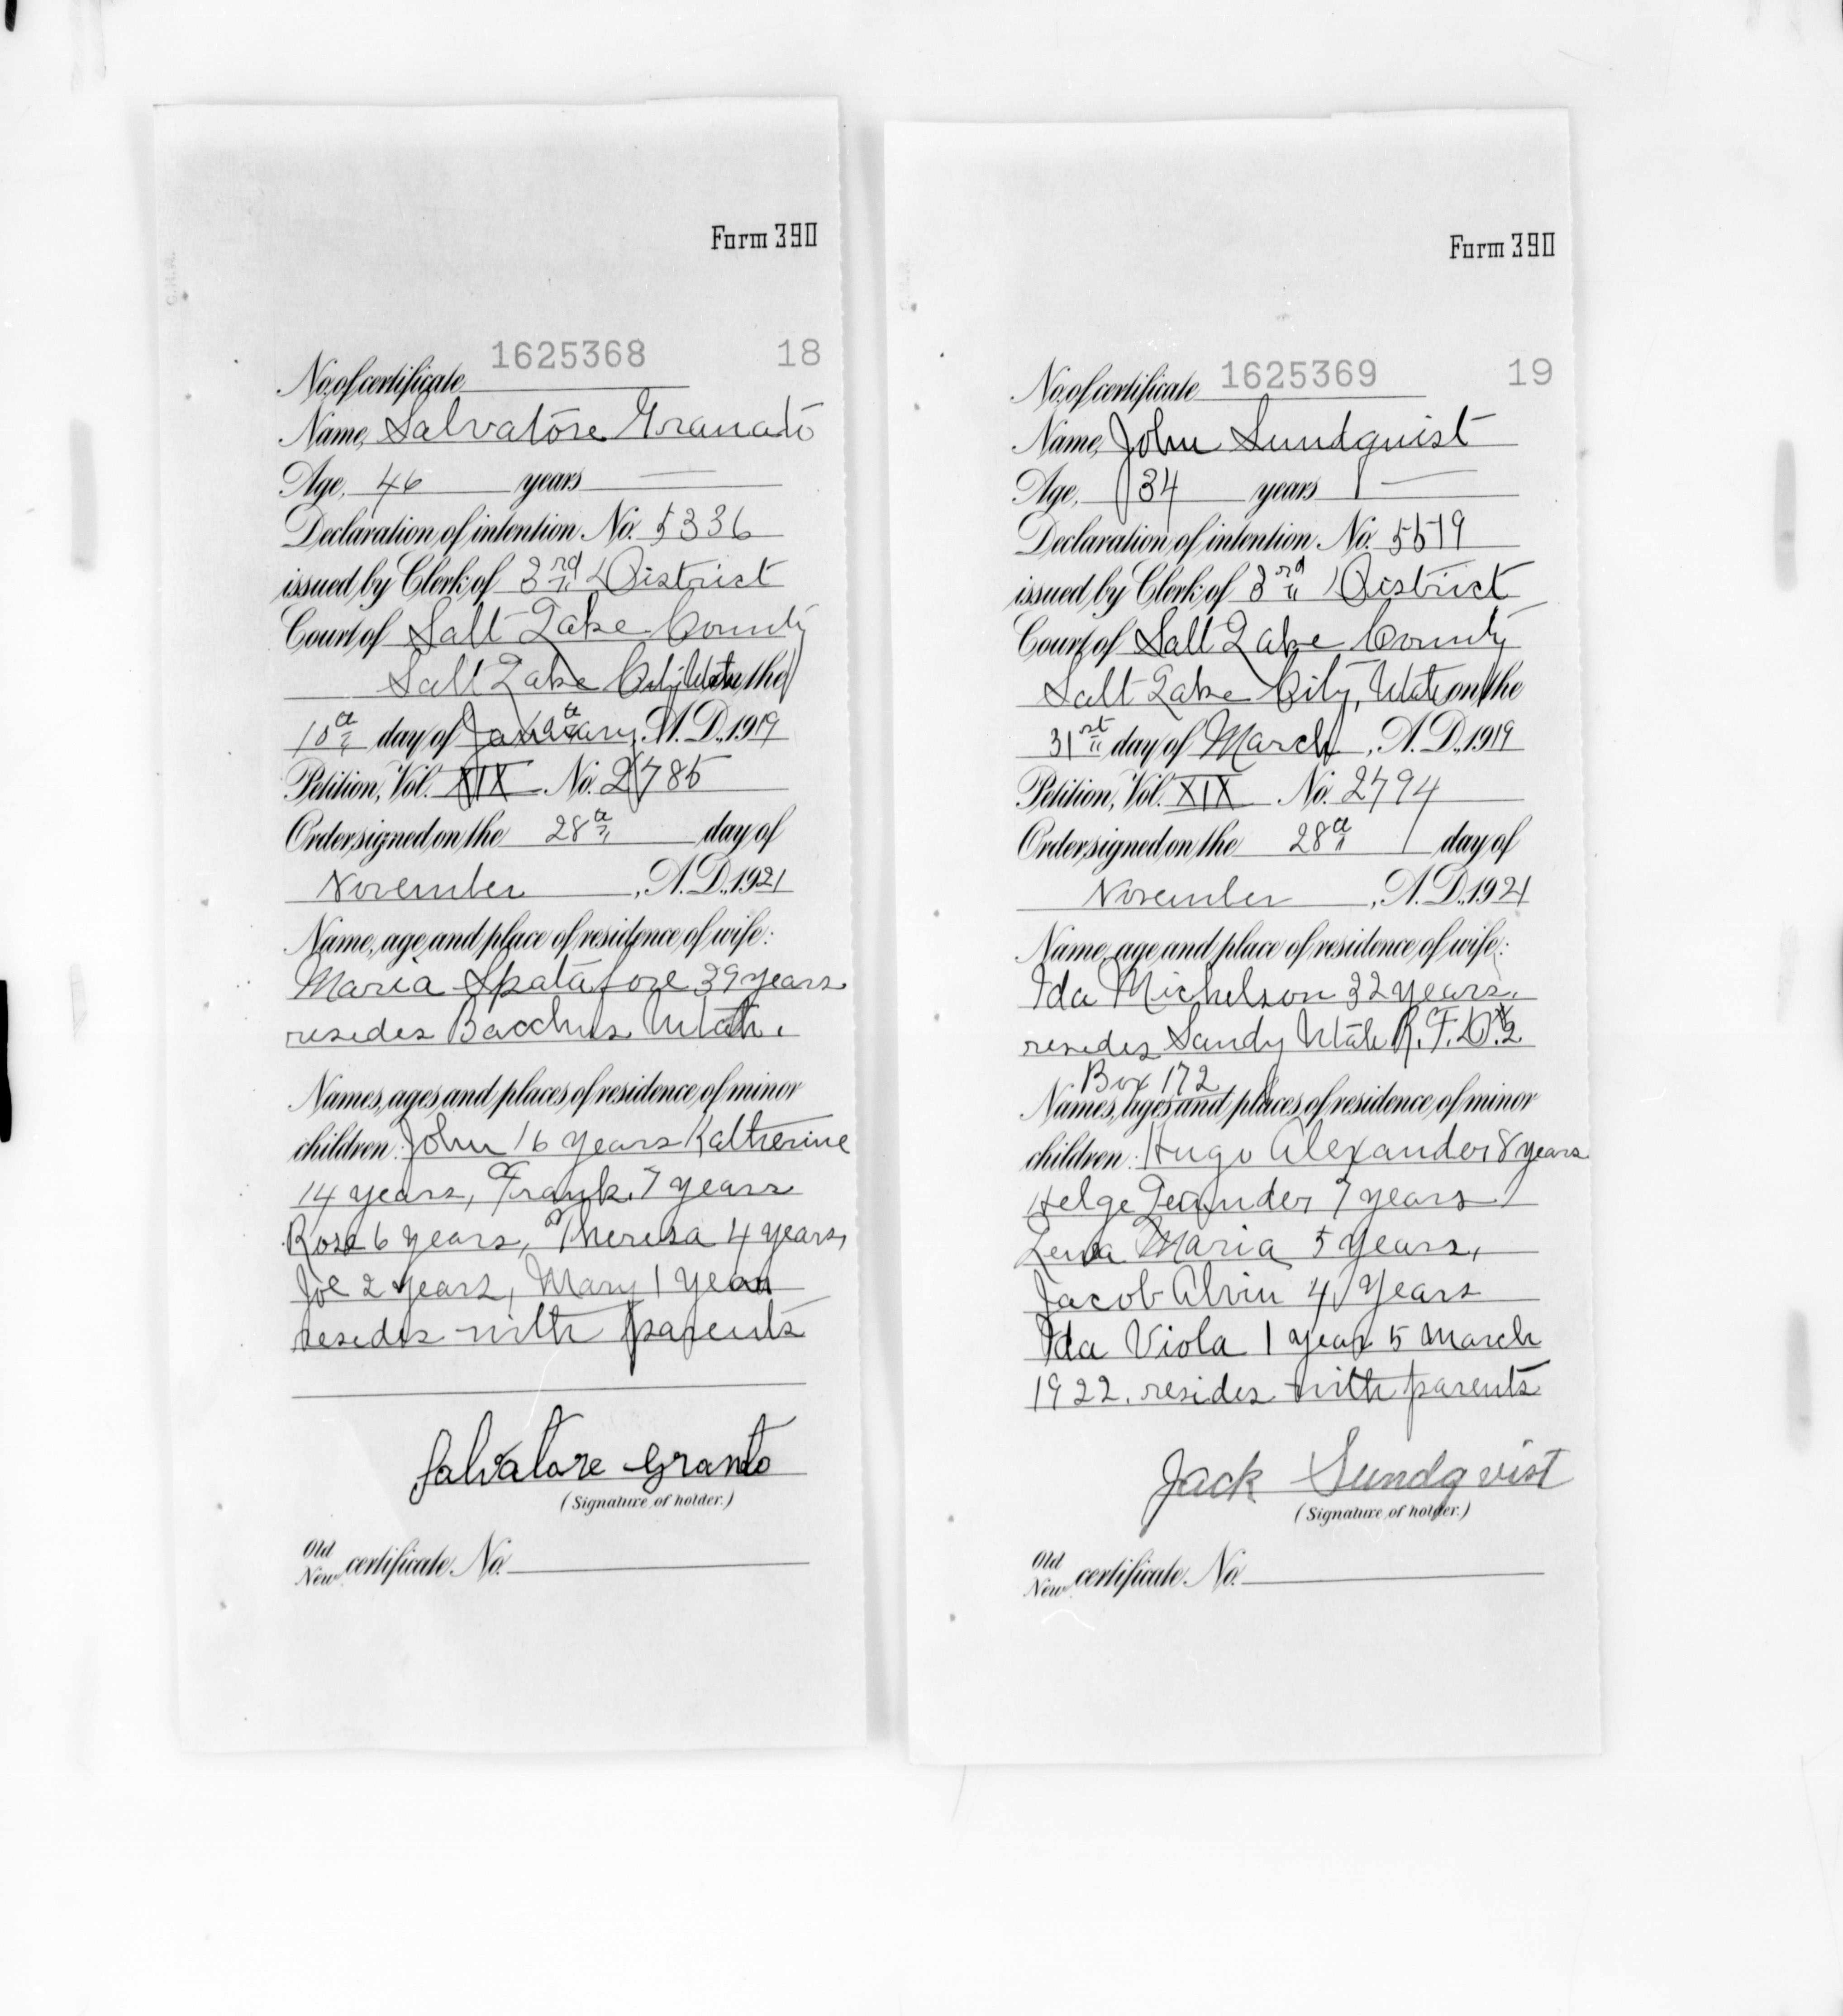 Form 390
1625368 18
No. of certificate
Name, Salvatore Granato
Age, 46 years
Declaration of intention No. 5336
issued by Clerk of 3rd District
Court of Salt Lake County
Salt Lake City Utah on the
10th day of January, A.D., 1919
Petition, Vol. XIX No. 2785
Order signed on the 28th day of
November, A.D., 1921
Name, age and place of residence of wife:
Maria Spatafore 39 years
resides Bacchus Utah.
Names, ages and places of residence of minor
children: John 16 years Katherine
14 years, Frank 7 years
Rose 6 years, Theresa 4 years,
Joe 2 years, Mary 1 year
resides with parents
Salvatore Granto
(Signature of holder.)
Old
New certificate No.
Form 390
1625369 19
No. of certificate
Name, John Sundquist
Age, 34 years
Declaration of intention No. 5519
issued by Clerk of 3rd District
Court of Salt Lake County
Salt Lake City, Utah on the
31st day of March, A.D., 1919
Petition, Vol. XIX No. 2794
Order signed on the 28th day of
November, A.D., 1921
Name, age and place of residence of wife:
Ida Michelson 32 years.
resides Sandy Utah R.F.D. #2
Box 172
Names, ages and places of residence of minor
children: Hugo Alexander 8 years
Helge 7 years
Maria 5 years,
Jacob Alvin 4 years
Ida Viola 1 year 5 March
1922. resides with parents
Jack Sundqvist
(Signature of holder.)
Old
New certificate No.